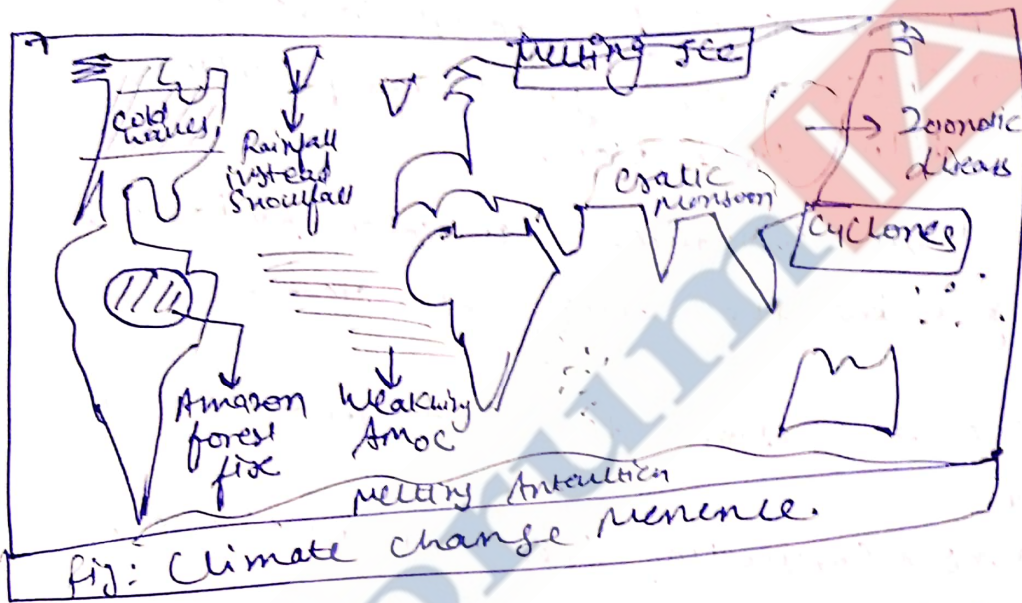 Melting Ice
Cold
waves
Rainfall
instead
Snowfall
eratic
Monsoon
Zoonotic
diseases
Cyclones
Amazon
forest
fire
Weakning
AMOC
Melting Antarctica
fig: Climate change menence.